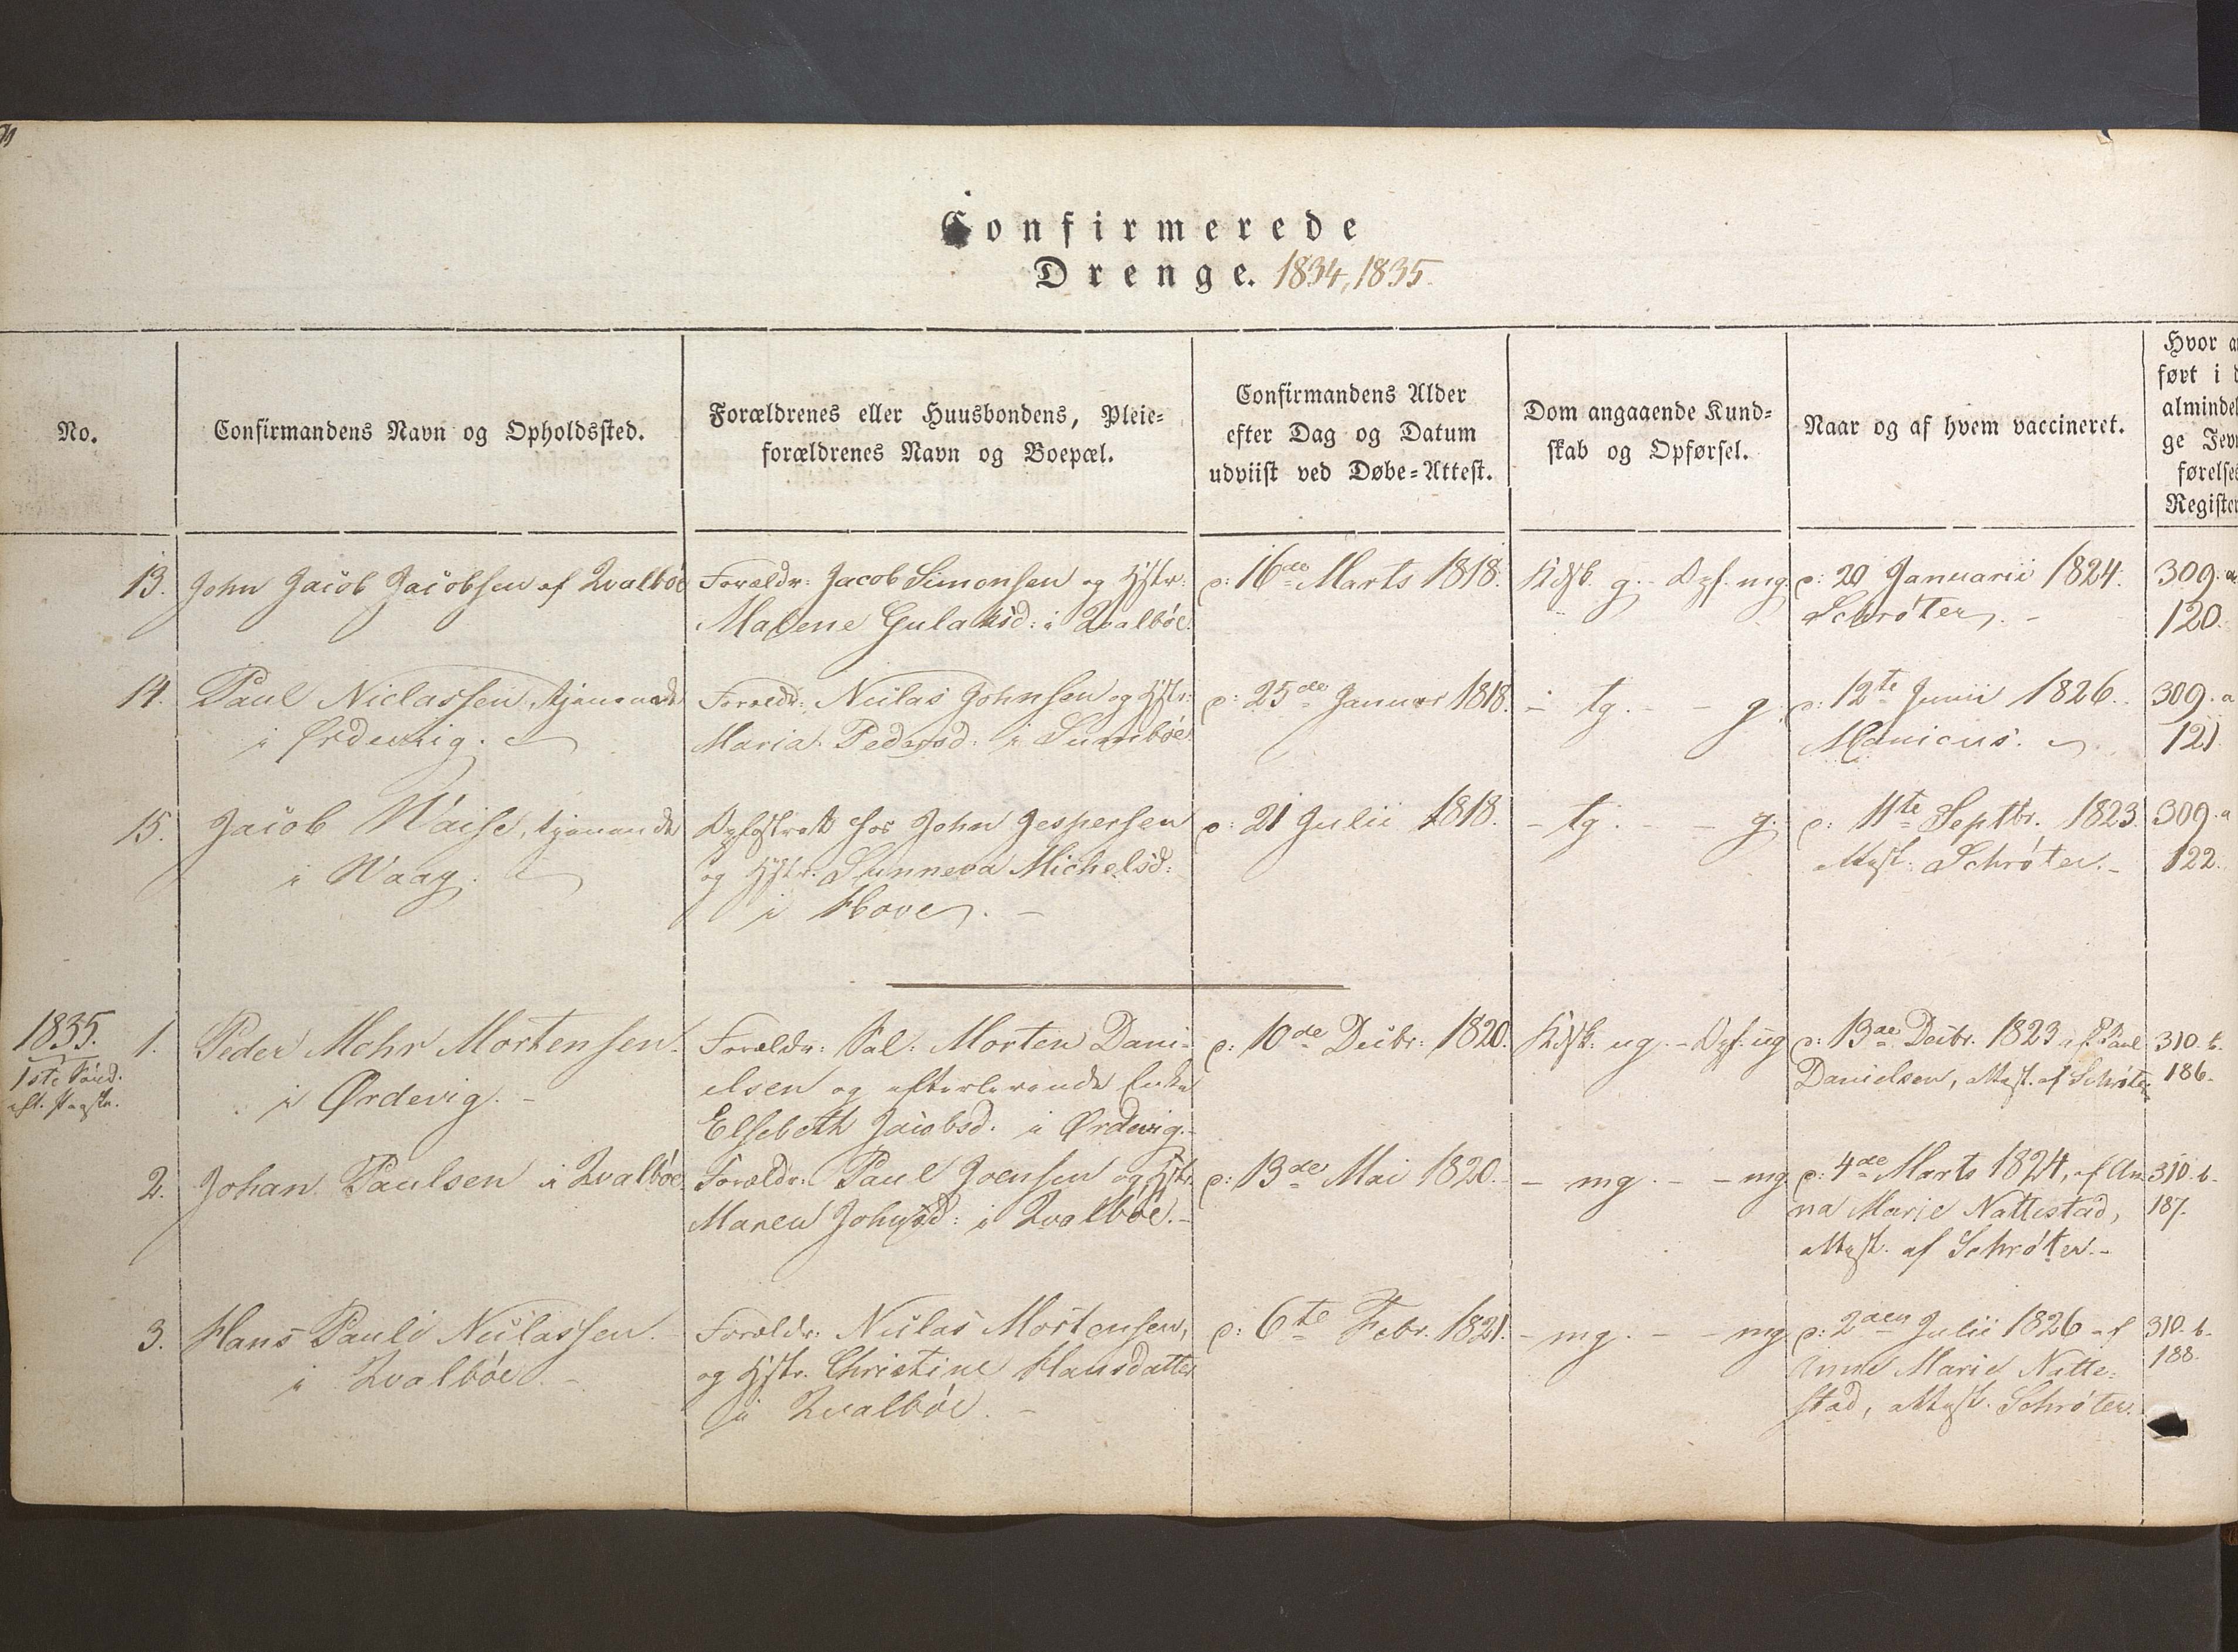 Confirmerede
Drenge. 1834, 1835.
No.
Confirmandens Navn og Opholdssted.
Forældrenes eller Huusbondens, Pleie-
forældrenes Navn og Boepæl.
Confirmandens Alder
efter Dag og Datum
udviist ved Døbe-Attest.
Dom angaaende Kund-
skab og Opførsel.
Naar og af hvem vaccineret.
Hvor a
ført i d
almindel
ge Jevn
førelses
Register
13.
John Jacob Jacobsen af Qvalböe
Forældr: Jacob Simonsen og Hstr:
Malene Gulaksd: i Qvalböe.
d: 16de Marts 1818.
Kdsk. g. - Opf. mg.
d: 20 Januarii 1824.
Schrøter. -
309. a
120.
14.
Paul Niclassen, tjenende
i Ørdevig.
Forældr: Niclas Johnsen og Hstr:
Maria Pedersd: i Sumböe.
d: 25de Januar 1818.
- tg. - - g.
d: 12te Junii 1826.
Manicus.
309. a
121
15.
Jacob Waise, tjenende
i Waag.
Opfostret hos John Jespersen
og Hstr. Sunneva Michelsd:
i Hove. -
d: 21 Julii 1818.
- tg. - - g.
d: 11te Septbr. 1823.
Attest. Schrøter. -
309. a
122.
1835.
1ste Sønd.
eft. Paaske.
1.
Peder Mohr Mortensen.
i Ørdevig. -
Forældr: Sal: Morten Dani-
elsen og efterlevende Enke
Elsebeth Jacobsd. i Ørdevig. -
d: 10de Decbr: 1820.
Kdsk. ug. - Opf. ug
d: 13de Decbr. 1823 af Paul
Danielsen, Attest. af Schrøter.
310. b.
186.
2.
Johan Paulsen i Qvalböe.
Forældr: Paul Joensen og Hstr.
Maren Johnsd: i Qvalböe. -
d: 13de Mai 1820. -
- mg. - - mg
d: 4de Marts 1824, af An-
na Marie Nattestad,
Attest. af Schrøter. -
310. b.
187.
3.
Hans Pauli Niclassen.
i Qvalböe. -
Forældr: Niclas Mortensen,
og Hstr. Christine Hansdatter
i Qvalböe. -
d: 6te Febr. 1821.
- mg. - - mg
d: 2den Julii 1826 af
Anne Marie Natte-
stad, Attest. Schrøter.
310. b.
188.